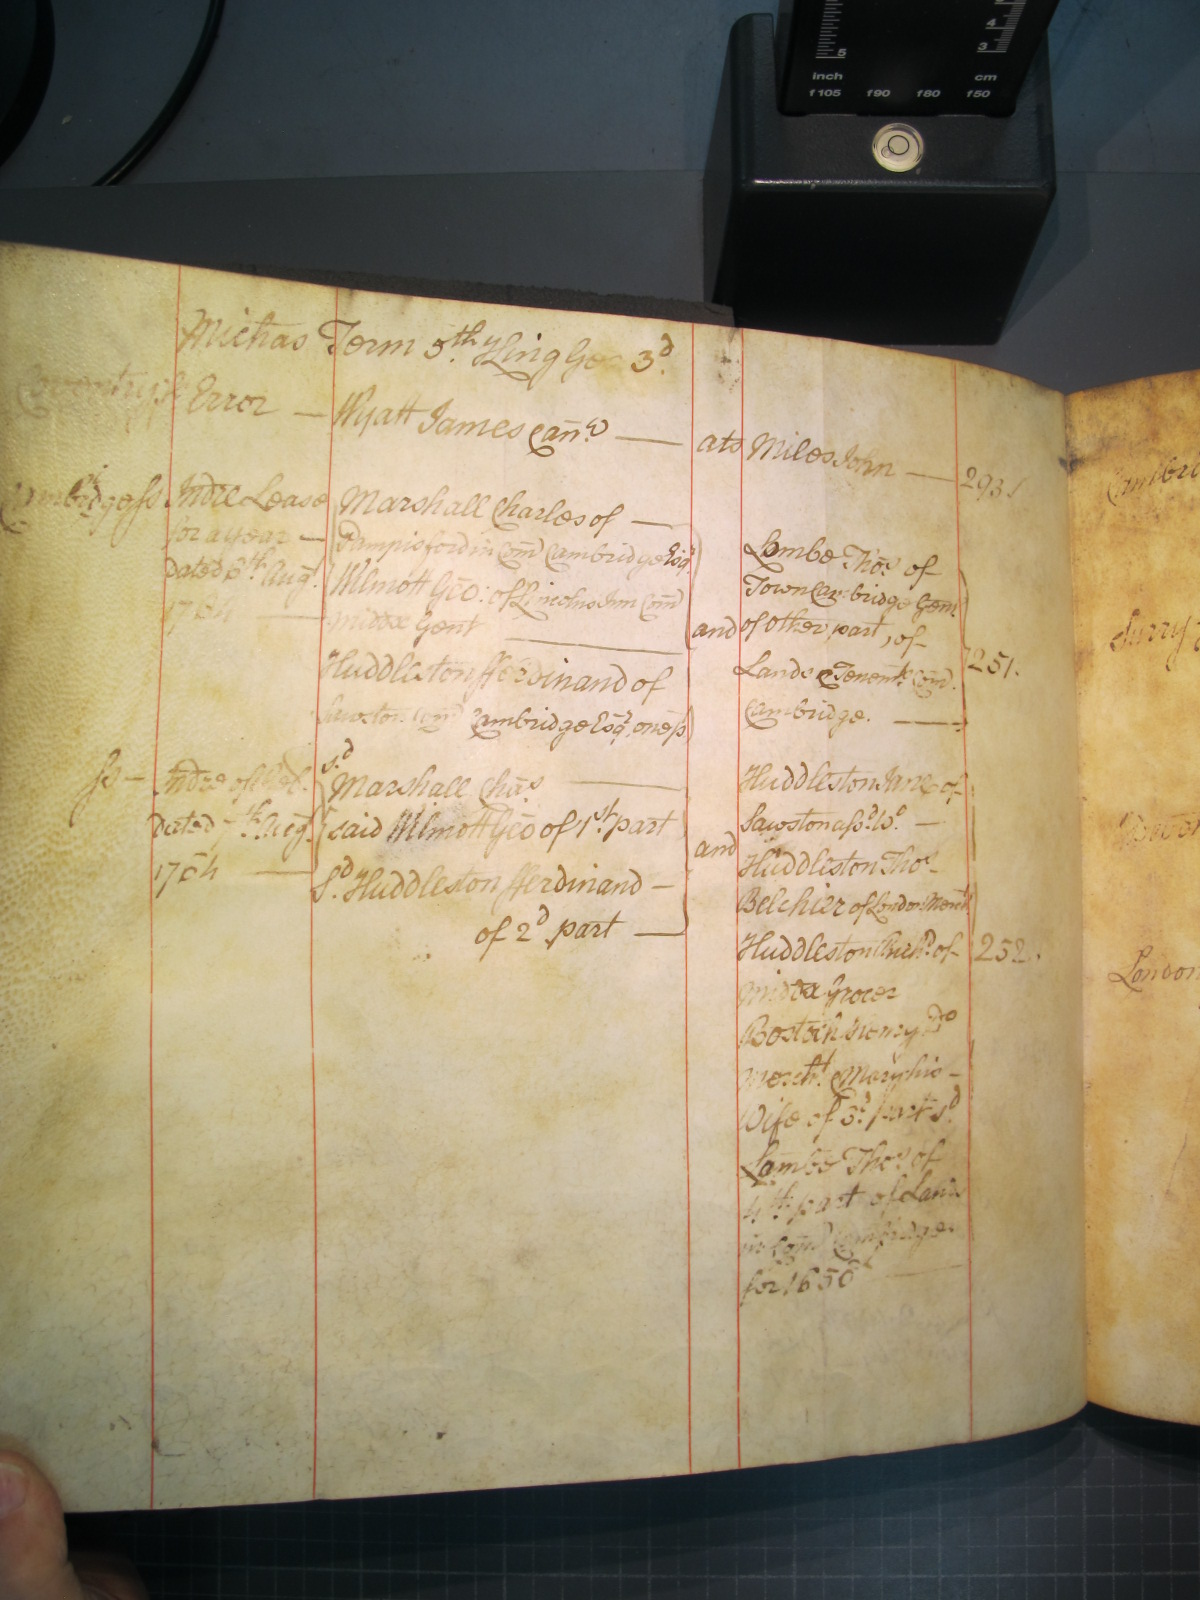 5
4
3
inch cm
f105 f90 f80 f50
Michas Term 5th King Geo 3d
Coventry ss Error — Wyatt James Canc — ats Miles John — 293
Cambridge ss Indre Lease
for a year —
dated 6th Augt
1764 —
Marshall Charles of —
Pampisford in Com Cambridge Esqr
Wlmott Geo: of Lincolns Inn Com
Middx Gent —
Huddleston Fferdinand of
Sawston Com Cambridge Esqr, one pt
and
Lambe Thos of
Town Cambridge Gent
of other part, of
Lands & Tenemts Com
Cambridge. —
251.
ss — Indre of Rel.
dated 7th Aug.
1764 —
sd
Marshall Chas —
said Wlmott Geo of 1st part
Sd. Huddleston Fferdinand —
of 2d part —
and
Huddleston Jane of
Sawston afsd. Wd. —
Huddleston Thos —
Belchier of London Merch
Huddleston Richd. of —
Middx Grocer
Bostock Henry Do
Mercht & Mary his —
Wife of 3d. part sd
Lambe Thos of
4th part of Lands
in Com Cambridge
for 1650 —
252.
Surry
London